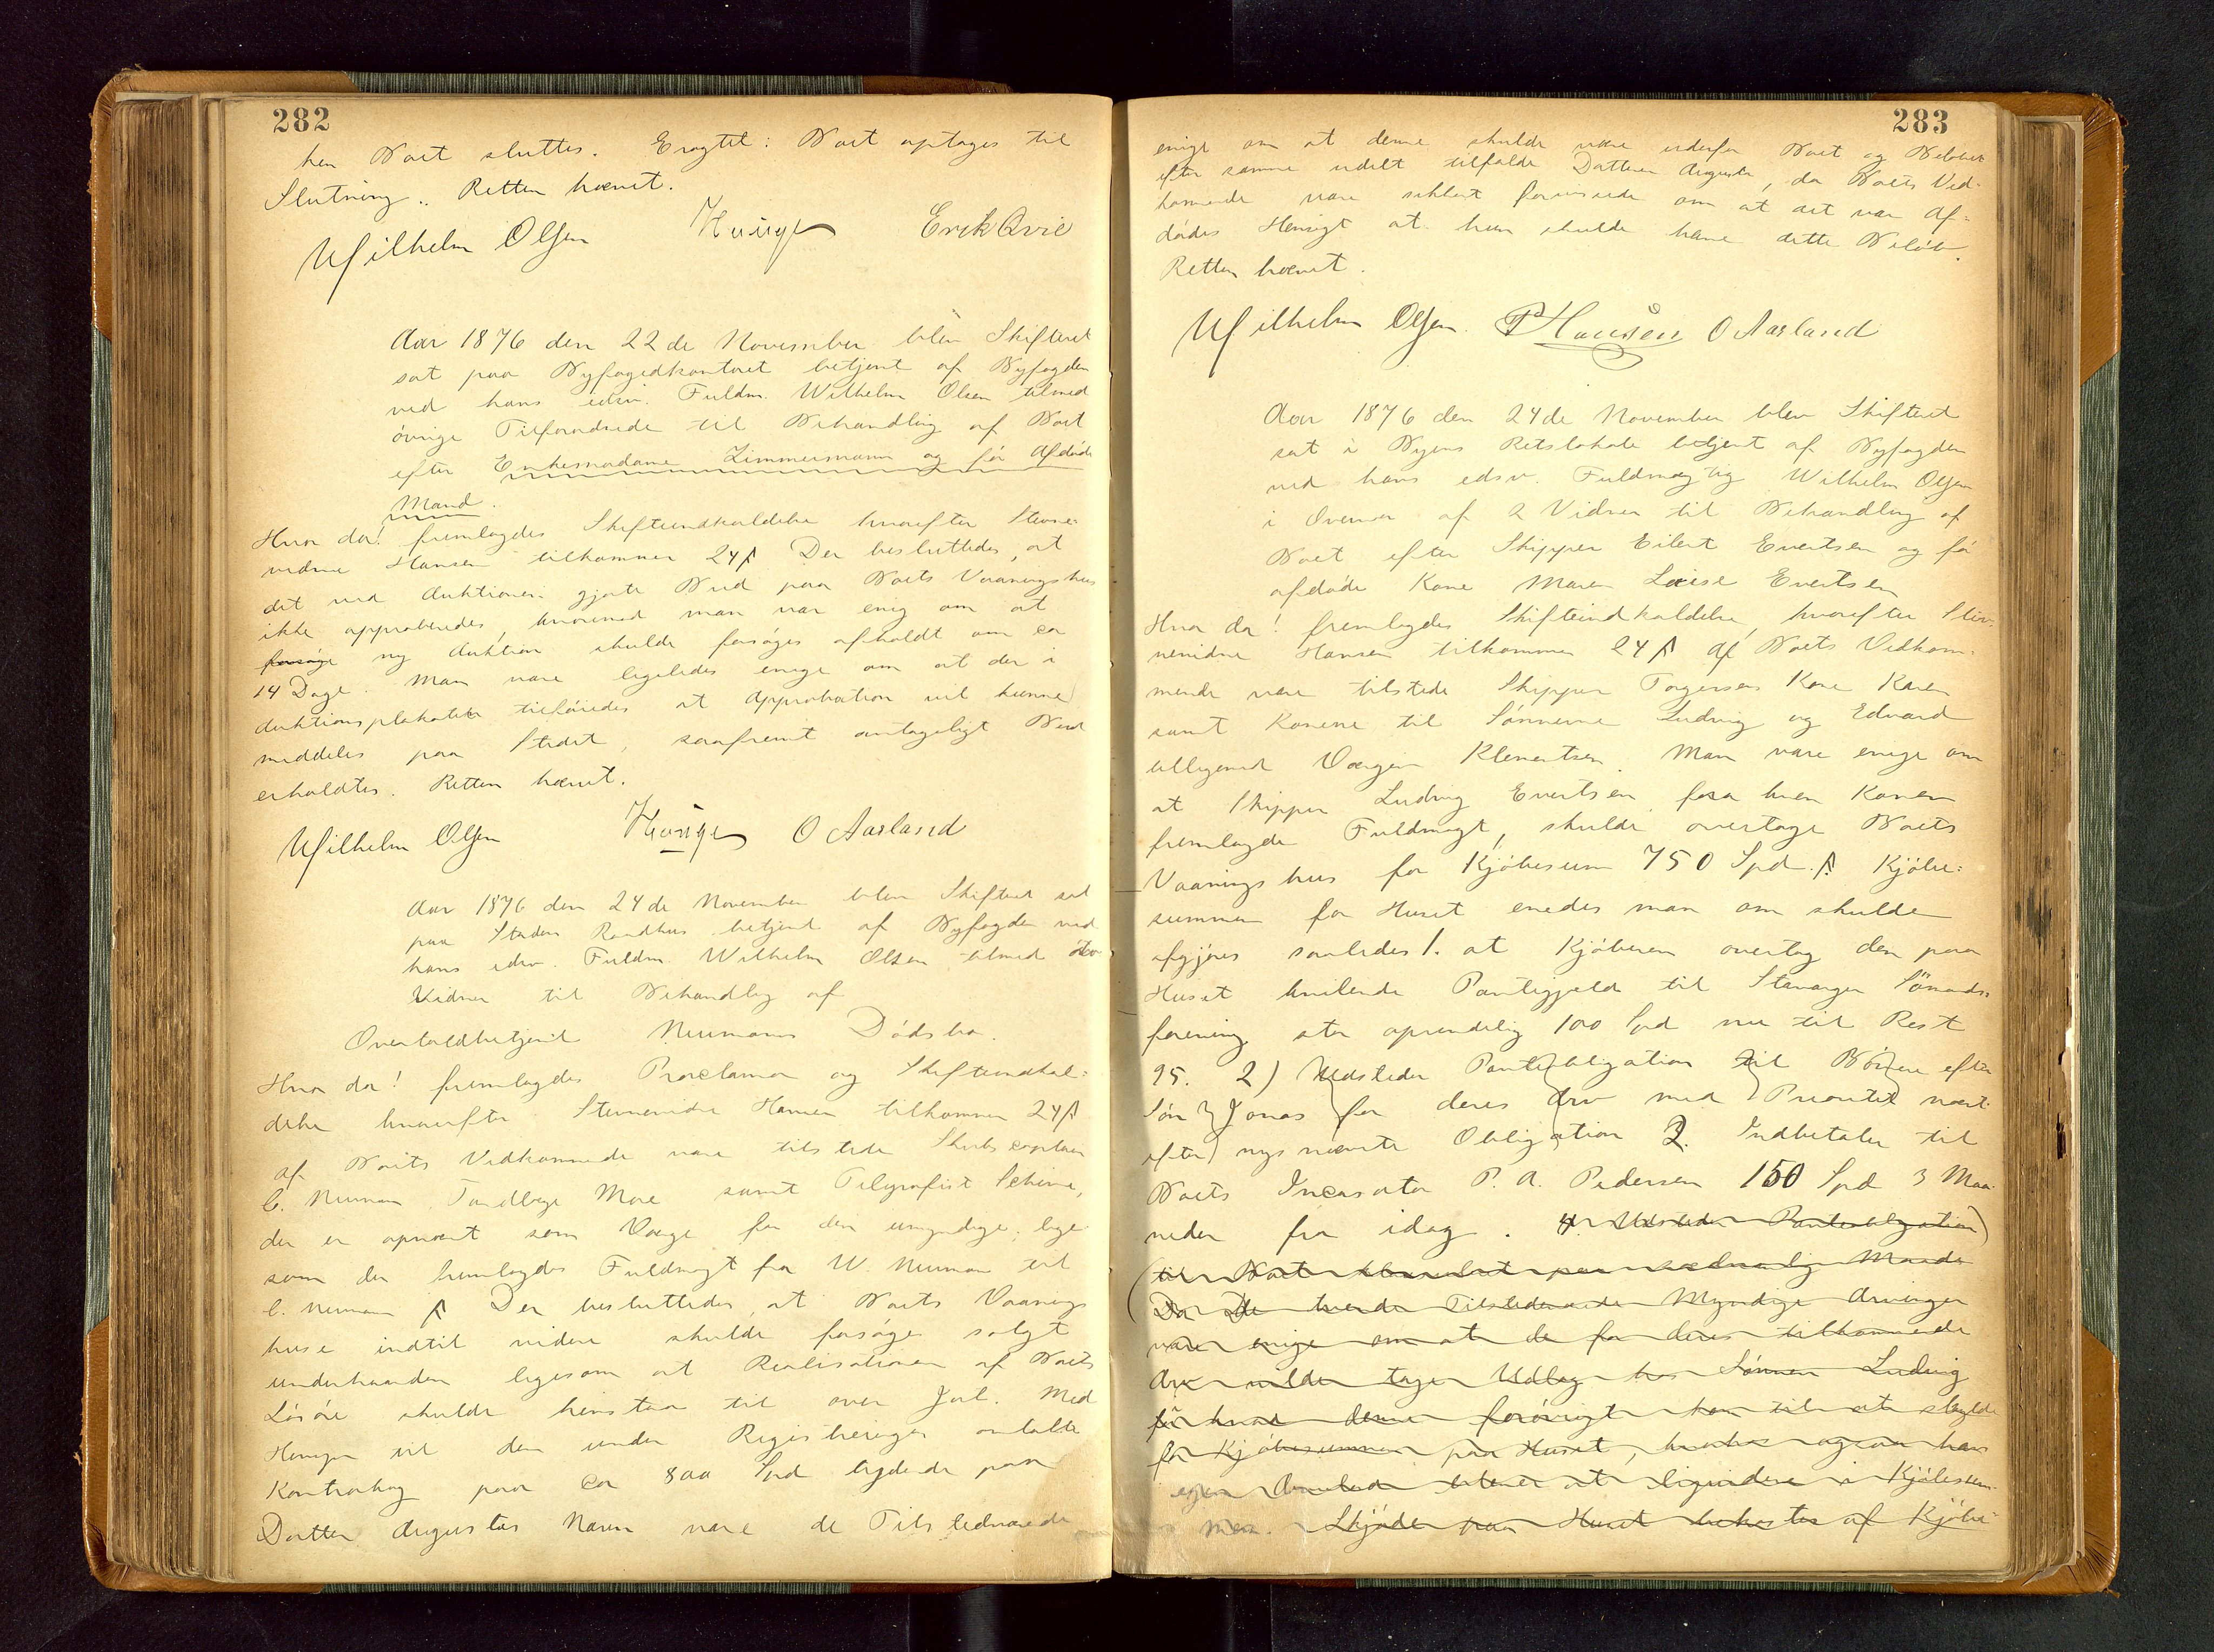 282
ken Boet sluttes. Eragtet: Boet optages til
Slutning.. Retten hævet.
Wilhelm Olsen Hauge Erik Qvie
Aar 1876 den 22de November blev Skifteret
sat paa Byfogedkontoret betjent af Byfogden
ved hans edsv. Fuldm. Wilhelm Olsen tilmed
øvrige Tilforordnede til Behandling af Boet
efter Enkemadame Zimmermann og før Afdøde
Mand.
Hvor da! fremlagdes Skifteindkaldelse hvorefter Stevne-
vidne Hansen tilkommer 24 β Der besluttedes, at
det ved Auktionen gjorte Bud paa Boets Vaaningshus
ikke approberedes hvorimod man var enig om at
forsøge ny Auktion skulde forsøges afholdt om ca
14 Dage. Man vare ligeledes enige om at der i
Auktionsplakaten tilføiedes at Approbation vil kunne
meddeles paa Stedet, saafremt antageligt Bud
erholdtes. Retten hævet.
Wilhelm Olsen Hauge O Aarland
Aar 1876 den 24de November blev Skifteret sat
paa Stadens Raadhus betjent af Byfogden ved
hans edsv. Fuldm Wilhelm Olsen tilmed
Vidner til Behandling af
Overtoldbetjent Neumanns Dødsbo.
Hvor da! fremlagdes Proclama og Skifteindkal-
delse hvorefter Stevnevidne Hansen tilkommer 24 β
af Boets Vedkommende vare tilstede Skibscaptain
C. Neuman Tandlæge Moe samt Telegrafist Schive,
der er opnævnt som Værge for den umyndige, lige
som der fremlagdes Fuldmagt fra W. Neuman til
C. Neuman β Der besluttedes, at Boets Vaanings
huse indtil videre skulde forsøges solgt
underhaanden ligesom at Realisationen af Boets
Løsøre skulde henstaa til over Jul. Med
Hensyn til den under Registreringen omtalte
Kontrabog paa ca 800 Spd lydende paa
Datter Augustas Navn vare de Tilstedværende
283
enige om at denne skulde være udenfor Boet og Beløbet
efter samme udelt tilfalde Datteren Augusta, da Boets Ved-
kommende vare sikkert forvissede om at det var Af-
dødes Hensigt at hun skulde have dette Beløb.
Retten hævet.
Wilhelm Olsen. P Hansen O Aarland
Aar 1876 den 24de November blev Skifteret
sat i Byens Retslokale betjent af Byfogden
ved hans edsv. Fuldmægtig Wilhelm Olsen
i Overvær af 2 Vidner til Behandling af
Boet efter Skipper Eilert Evertsen og før
afdøde Kone Maren Loise Evertsen
Hvor da! fremlagdes Skifteindkaldelse, hvorefter Stev-
nevidne Hansen tilkommer 24 β Af Boets Vedkom-
mende vare tilstede Skipper Torgersens Kone Karen
samt Konerne til Sønnerne Ludvig og Edvard
tilligemed Værgen Klementsen. Man vare enige om
at Skipper Ludvig Evertsen, fra hvem Konen
fremlagde Fuldmagt, skulde overtage Boets
Vaaningshus for Kjøbesum 750 Spd. β. Kjøbe-
summen for Huset enedes man om skulde
afgjøres saaledes 1. at Kjøberen overtog den paa
Huset hvilende Pantegjeld til Stavanger Sømands-
forening stor oprindelig 100 Spd nu til Rest
95. 2) Udsteder Panteobligation til Børnene efter
Søn Jonas for deres Arv med Prioritet næst
efter nysnævnte Obligation 3. Indbetaler til
Boets Incasator P. A. Pedersen 150 Spd 3 Maa-
neder fra idag. 4. Udsteder Panteobligation
til Boet paa sædvanlig Maade
Da De tvende Tilstedeværende Myndige Arvinger
vare enige om at de for deres tilkommende
Arv vilde tage Udlæg hos Sønnen Ludvig
for hvad denne forøvrigt kom til at skylde
for Kjøbesummen paa Huset, hvorhos ogsaa hans
egen Arvelod bliver at liqvidere i Kjøbesum-
men. Skjøde paa Huset bekostes af Kjøbe-